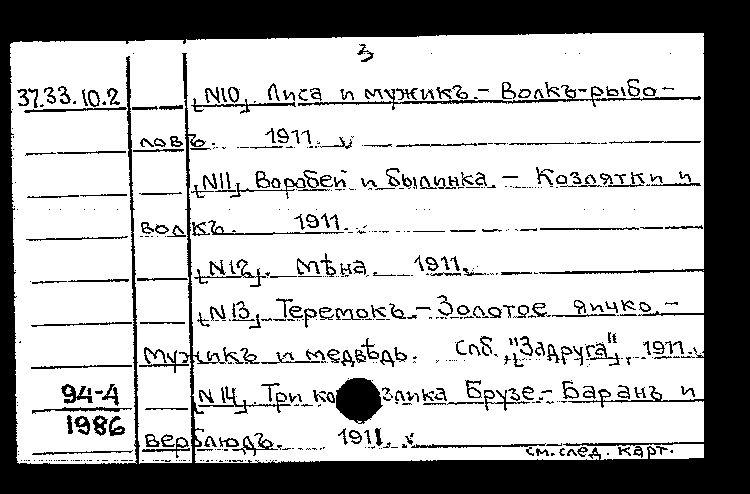 3
37.33.10.2 [N10]. Лиса и мужикъ.- Волкъ-рыбо-
ловъ. 1911. v
[N11]. Воробей и былинка. - Козлятки и
волкъ. 1911.
[N12]. Мѣна. 1911.
[N13]. Теремокъ.- Золотое яичко.-
Мужикъ и медвѣдь. Спб. "Задруга", 1911.
94-4 [N14]. Три козлика Брузе.- Баранъ и
1986
верблюдъ. 1911. v
см. след. карт.